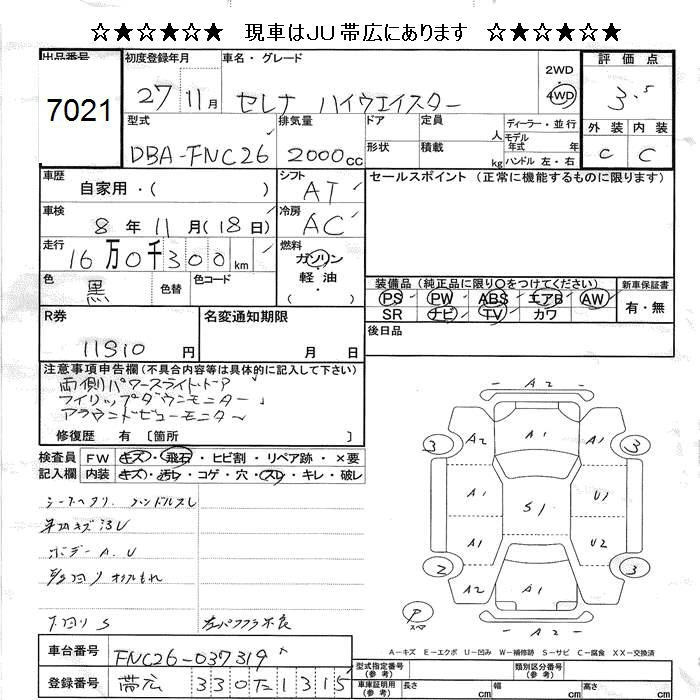 ☆★☆★☆ 現車はJU帯広にあります ☆★☆★☆
出品番号 初度登録年月 車名・グレード 評価点
7021 27 11月 セレナ ハイウエイスター 2WD 4WD 3.5
型式 排気量 ドア 定員 人 ディーラー・並行 外装 内装
DBA-FNC26 2000cc 形状 積載 kg モデル年式 年 ハンドル 左・右 C C
車歴 自家用・( ) シフト AT セールスポイント (正常に機能するものに限ります)
車検 8年11月(18日) 冷房 AC
走行 16万0千300km 燃料 ガソリン 軽油
色 黒 色替 色コード 装備品(純正品に限り○をつけてください) 新車保証書
PS PW ABS エアB AW 有・無
SR ナビ TV カワ
R券 11310円 名変通知期限 月 日 後日品
注意事項申告欄(不具合内容等は具体的に記入して下さい)
両側パワースライドドア
フィリップダウンモニター
アラウンドビューモニター
修復歴 有 〔箇所 〕
検査員 FW キズ・飛石・ヒビ割・リペア跡・×要
記入欄 内装 キズ・汚レ・コゲ・穴・スレ・キレ・破レ
シートヘタリ ハンドルスレ
ボデー A.U
下回りS
A2
3 A2 A1 A2 3
A1 S1 U1
A1 U2
2 A2 A1 A2 3
A2
P スペア
A-キズ E-エクボ U-凹み W-補修跡 S-サビ C-腐食 XX-交換済
車台番号 FNC26-037319 型式指定番号(参考) 類別区分番号(参考)
登録番号 帯広 330 た 1315 車庫証明用(参考) 長さ cm 幅 cm 高さ cm